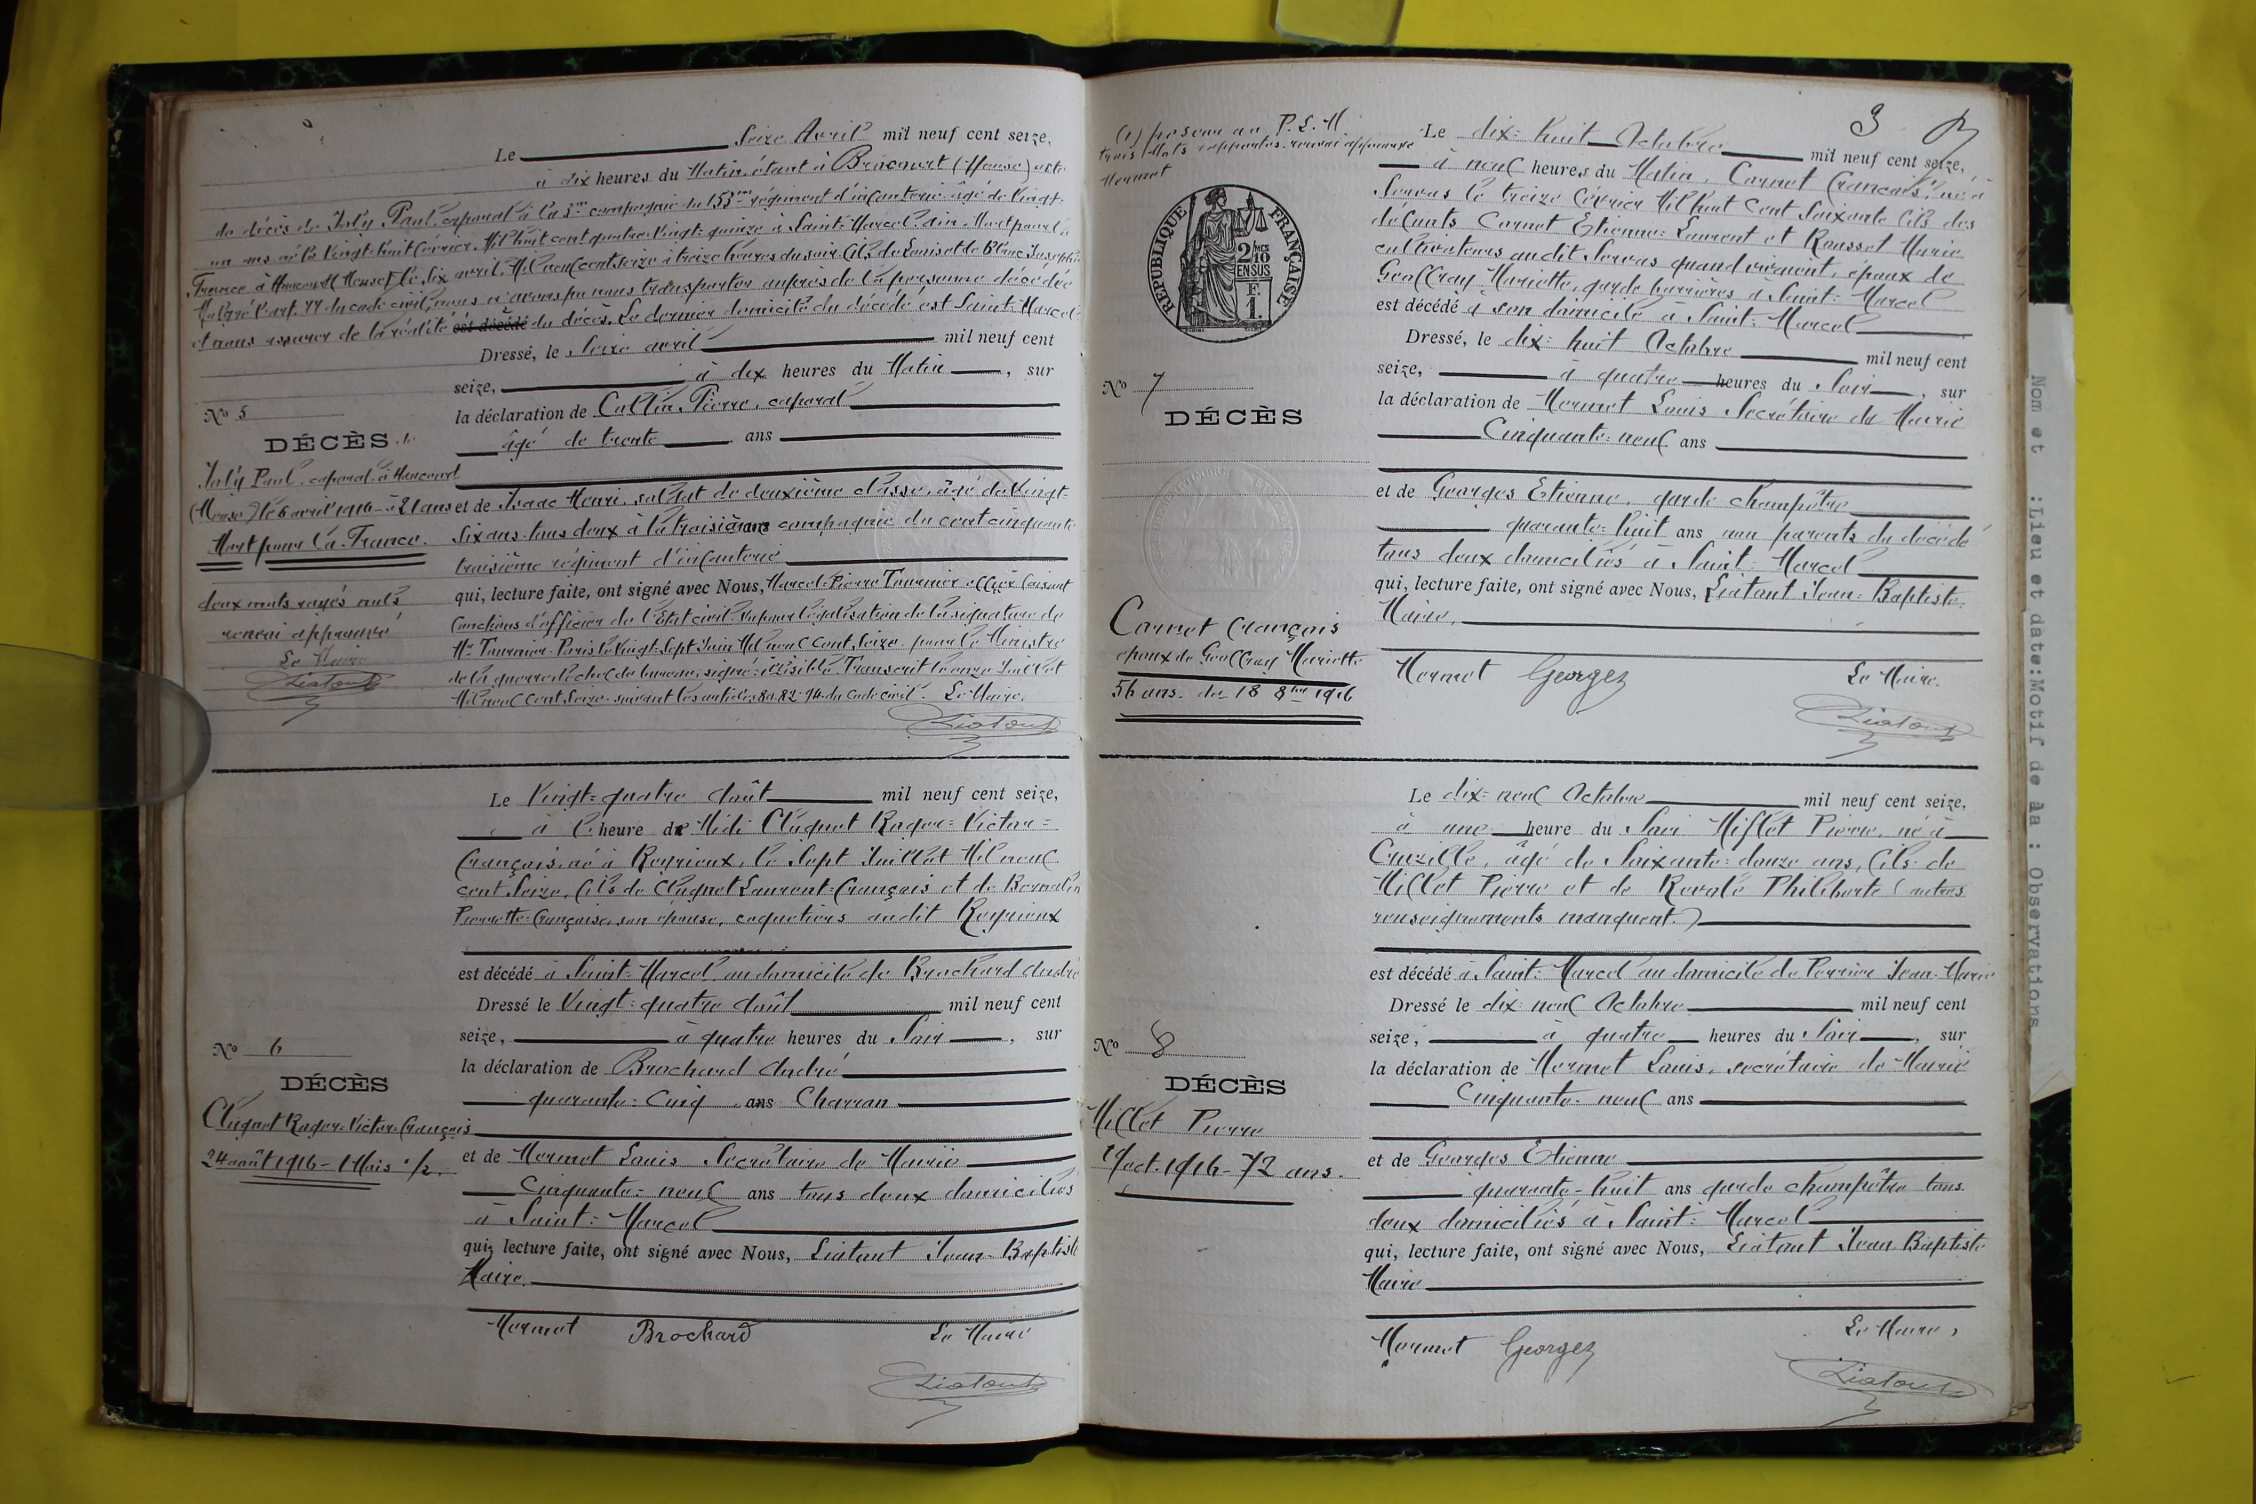 Le Seize Avril mil neuf cent seize,
à dix heures du Matin, étant à Brocourt (Meuse) acte
de décès de Joly Paul, caporal à la 3me compagnie du 153me régiment d'infanterie âgé de Vingt-
un ans né le Vingt-huit février Mil huit cent quatre-Vingt-quinze à Saint-Marcel Ain. Mort pour la
France à Haucourt Meuse le six avril Mil neuf cent seize à treize heures du soir fils de Louis et de Blanc Joséphine
Malgré l'art. 77 du code civil, nous n'avons pu nous transporter auprès de la personne décédée
et nous assurer de la réalité est décédé du décès. Le dernier domicile du décédé est Saint-Marcel
Dressé, le Seize avril mil neuf cent
seize, à dix heures du Matin, sur
la déclaration de Collin Pierre, caporal
âgé de trente ans
No 5
DÉCÈS
Joly Paul, caporal à Haucourt
(Meuse) le 6 avril 1916 - à 21 ans
Mort pour la France.
deux mots rayés nuls
renvoi approuvé
Le Maire
Liatout
et de Isaac Henri, soldat de deuxième classe, âgé de Vingt-
six ans tous deux à la troisième ans compagnie du cent cinquante
troisième régiment d'infanterie
qui, lecture faite, ont signé avec Nous, Marcel Pierre Tournier officier faisant
fonctions d'officier de l'Etat civil. Vu pour légalisation de la signature de
Mr Tournier. Paris le Vingt-Sept Juin Mil neuf cent Seize. pour le Ministre
de la guerre le chef de bureau, signé: illisible. Transcrit le onze Juillet
Mil neuf cent Seize suivant les articles 80.82.94 du Code Civil. Le Maire.
Liatout
Le Vingt-quatre Août mil neuf cent seize,
à l' heure de Midi Cluquet Roger-Victor-
François, né à Reyrieux, le Sept Juillet Mil neuf
cent Seize, fils de Cluquet Laurent-François et de Bernalin
Pierrette-Françoise, son épouse, coquetiers audit Reyrieux
est décédé à Saint-Marcel, au domicile de Brochard André
Dressé le Vingt-quatre Août mil neuf cent
seize, à quatre heures du Soir, sur
la déclaration de Brochard André
quarante-Cinq ans Charron
No 6
DÉCÈS
Cluquet Roger-Victor-François
24 août 1916 - 1 Mois 1/2.
et de Mermet Louis Secrétaire de Mairie
Cinquante-neuf ans tous deux domiciliés
à Saint-Marcel
qui, lecture faite, ont signé avec Nous, Liatout Jean-Baptiste
Maire.
Mermet Brochard Le Maire
Liatout
3
(1) trois Mots rapportés renvoi approuvé
Mermet
Le dix-huit Octobre mil neuf cent seize,
à neuf heures du Matin, Carnet François, né à
Servas le treize février Mil huit Cent Soixante fils des
défunts Carnet Etienne-Laurent et Rousset Marie
cultivateurs audit Servas quand vivaient, époux de
Geoffray Mariette, garde barrières à Saint-Marcel
est décédé à son domicile à Saint-Marcel
Dressé, le dix-huit Octobre mil neuf cent
seize, à quatre heures du Soir, sur
la déclaration de Mermet Louis Secrétaire de Mairie
Cinquante-neuf ans
RÉPUBLIQUE FRANÇAISE
2/10 EN SUS
F. 1.
No 7
DÉCÈS
Carnet François
époux de Geoffray Mariette
56 ans. du 18 8bre 1916
et de Georges Etienne, garde champêtre
quarante-huit ans non parents du décédé
tous deux domiciliés à Saint-Marcel
qui, lecture faite, ont signé avec Nous, Liatout Jean-Baptiste-
Maire,
Mermet Georgez Le Maire.
Liatout
Le dix-neuf Octobre mil neuf cent seize,
à une heure du Soir Millet Pierre, né à
Cruzille, âgé de Soixante-douze ans, fils de
Millet Pierre et de Revole Philiberte (autres
renseignements manquent.)
est décédé à Saint-Marcel au domicile de Perrier Jean-Marie
Dressé le dix-neuf Octobre mil neuf cent
seize, à quatre heures du Soir, sur
la déclaration de Mermet Louis, secrétaire de Mairie
Cinquante-neuf ans
No 8
DÉCÈS
Millet Pierre
19 oct. 1916 - 72 ans.
et de Georges Etienne
quarante-huit ans garde champêtre tous
deux domiciliés à Saint-Marcel
qui, lecture faite, ont signé avec Nous, Liatout Jean Baptiste
Maire
Mermet Georgez Le Maire,
Liatout
Nom et :Lieu et date:Motif de la : Observations